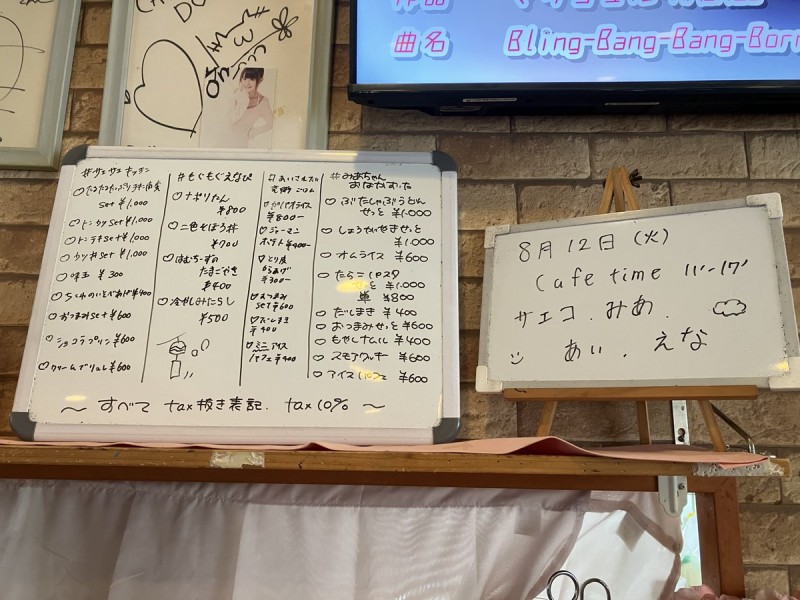 曲名 Bling-Bang-Bang-Born
#サエサエキッチン
Set ¥1,000
トンカツset ¥1,000
トンテキset ¥1,000
カツ丼set ¥1,000
味玉 ¥300
おつまみset ¥600
ショコラプリン ¥600
クリームブリュレ ¥600
#もぐもぐえなぴ
ナポリたん
¥800
二色そぼろ丼
¥700
はむちーずの
たまごやき
¥400
冷やしみたらし
¥500
ガパオライス
¥800-
ジャーマン
ポテト ¥400-
とり皮
からあげ
¥300-
おつまみ
set ¥600
だしまき
¥400
ミニアイス
パフェ ¥400
#みあちゃん
おなかすいた
ぶたしゃぶうどん
せっと ¥1,000
しょうがやきせっと
¥1,000
オムライス ¥600
たらこパスタ
せっと ¥1,000
単 ¥800
だしまき ¥400
おつまみせっと ¥600
もやしナムル ¥400
スモアクッキー ¥600
アイスパフェ ¥600
～ すべて tax抜き表記. tax10% ～
8月12日(火)
Cafe time 11:-17:
サエコ.みあ.
あい.えな